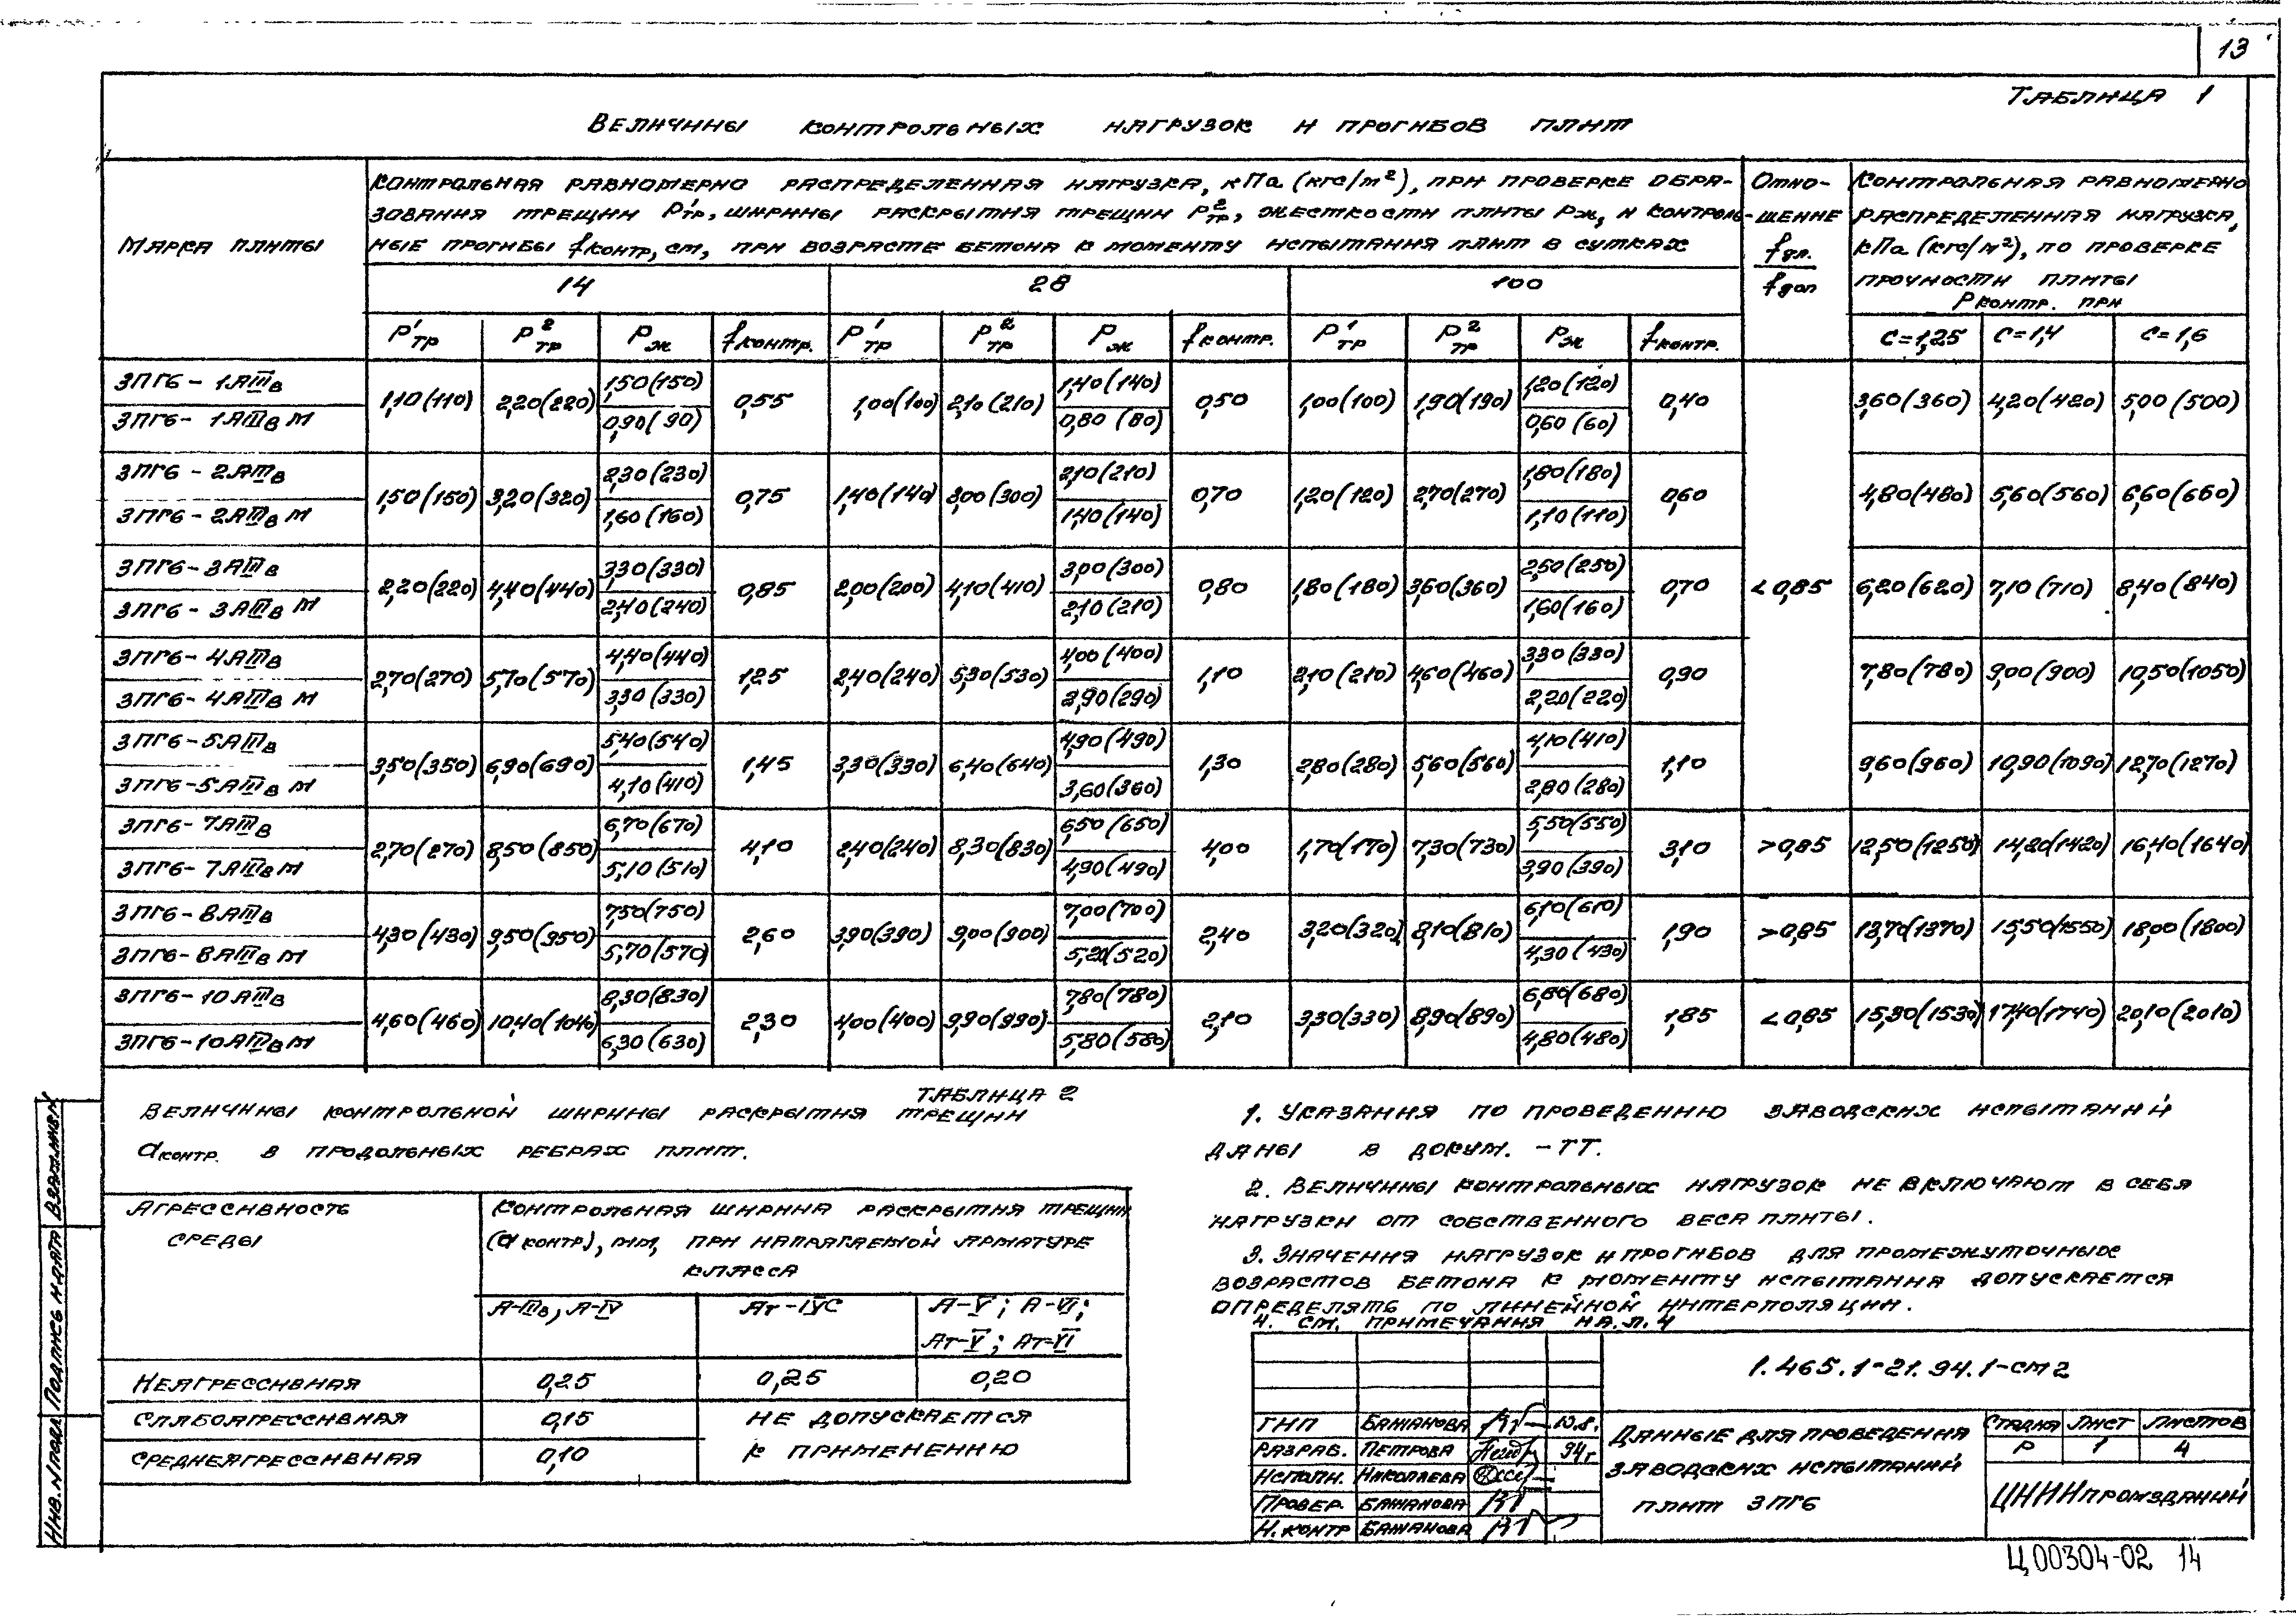 13
Таблица 1
Величины контрольных нагрузок и прогибов плит
Марка плиты
Контрольная равномерно распределенная нагрузка, кПа (кгс/м²), при проверке обра-
зования трещин P¹тр, ширины раскрытия трещин P²тр, жесткости плиты Pж, и контроль-
ные прогибы fконтр, см, при возрасте бетона к моменту испытания плит в сутках
Отно-
шение
fдл.
fдоп
Контрольная равномерно
распределенная нагрузка,
кПа (кгс/м²), по проверке
прочности плиты
Pконтр. при
14 28 100
P¹тр P²тр Pж fконтр. P¹тр P²тр Pж fконтр. P¹тр P²тр Pж fконтр. С=1,25 С=1,4 С=1,6
3ПГ6-1АIIIв 1,50(150) 1,40(140) 1,20(120)
1,10(110) 2,20(220) 0,55 1,00(100) 2,10(210) 0,50 1,00(100) 1,90(190) 0,40 3,60(360) 4,20(420) 5,00(500)
3ПГ6-1АIIIв М 0,90(90) 0,80(80) 0,60(60)
3ПГ6-2АIIIв 2,30(230) 2,10(210) 1,80(180)
1,50(150) 3,20(320) 0,75 1,40(140) 3,00(300) 0,70 1,20(120) 2,70(270) 0,60 4,80(480) 5,60(560) 6,60(660)
3ПГ6-2АIIIв М 1,60(160) 1,40(140) 1,10(110)
3ПГ6-3АIIIв 3,30(330) 3,00(300) 2,50(250)
2,20(220) 4,40(440) 0,85 2,00(200) 4,10(410) 0,80 1,80(180) 3,60(360) 0,70 <0,85 6,20(620) 7,10(710) 8,40(840)
3ПГ6-3АIIIв М 2,40(240) 2,10(210) 1,60(160)
3ПГ6-4АIIIв 4,40(440) 4,00(400) 3,30(330)
2,70(270) 5,70(570) 1,25 2,40(240) 5,30(530) 1,10 2,10(210) 4,60(460) 0,90 7,80(780) 9,00(900) 10,50(1050)
3ПГ6-4АIIIв М 3,30(330) 2,90(290) 2,20(220)
3ПГ6-5АIIIв 5,40(540) 4,90(490) 4,10(410)
3,50(350) 6,90(690) 1,45 3,30(330) 6,40(640) 1,30 2,80(280) 5,60(560) 1,10 9,60(960) 10,90(1090) 12,70(1270)
3ПГ6-5АIIIв М 4,10(410) 3,60(360) 2,80(280)
3ПГ6-7АIIIв 6,70(670) 6,50(650) 5,50(550)
2,70(270) 8,50(850) 4,10 2,40(240) 8,30(830) 4,00 1,70(170) 7,30(730) 3,10 >0,85 12,50(1250) 14,20(1420) 16,40(1640)
3ПГ6-7АIIIв М 5,10(510) 4,90(490) 3,90(390)
3ПГ6-8АIIIв 7,50(750) 7,00(700) 6,10(610)
4,30(430) 9,50(950) 2,60 3,90(390) 9,00(900) 2,40 3,20(320) 8,10(810) 1,90 >0,85 13,70(1370) 15,50(1550) 18,00(1800)
3ПГ6-8АIIIв М 5,70(570) 5,20(520) 4,30(430)
3ПГ6-10АIIIв 8,30(830) 7,80(780) 6,80(680)
4,60(460) 10,40(1040) 2,30 4,00(400) 9,90(990) 2,10 3,30(330) 8,90(890) 1,85 <0,85 15,30(1530) 17,40(1740) 20,10(2010)
3ПГ6-10АIIIв М 6,30(630) 5,80(580) 4,80(480)
Таблица 2
Величины контрольной ширины раскрытия трещин
aконтр. в продольных ребрах плит.
Агрессивность
среды
Контрольная ширина раскрытия трещин
(aконтр), мм, при напрягаемой арматуре
класса
А-IIIв, А-IV Ат-IVС А-V; А-VI;
Ат-V; Ат-VI
Неагрессивная 0,25 0,25 0,20
Слабоагрессивная 0,15 не допускается
Среднеагрессивная 0,10 к применению
1. Указания по проведению заводских испытаний
даны в докум. -ТТ.
2. Величины контрольных нагрузок не включают в себя
нагрузки от собственного веса плиты.
3. Значения нагрузок и прогибов для промежуточных
возрастов бетона к моменту испытания допускается
определять по линейной интерполяции.
4. См. примечания на л. 4
1.465.1-21.94.1-см2
ГИП Бажанова 10.8.
Разраб. Петрова 94г
Исполн. Николаева
Провер. Бажанова
Н.контр Бажанова
Данные для проведения
заводских испытаний
плит 3ПГ6
Стадия Лист Листов
Р 1 4
ЦНИИпромзданий
Инв. № подл. Подпись и дата Взам.инв.№
Ц00304-02 14